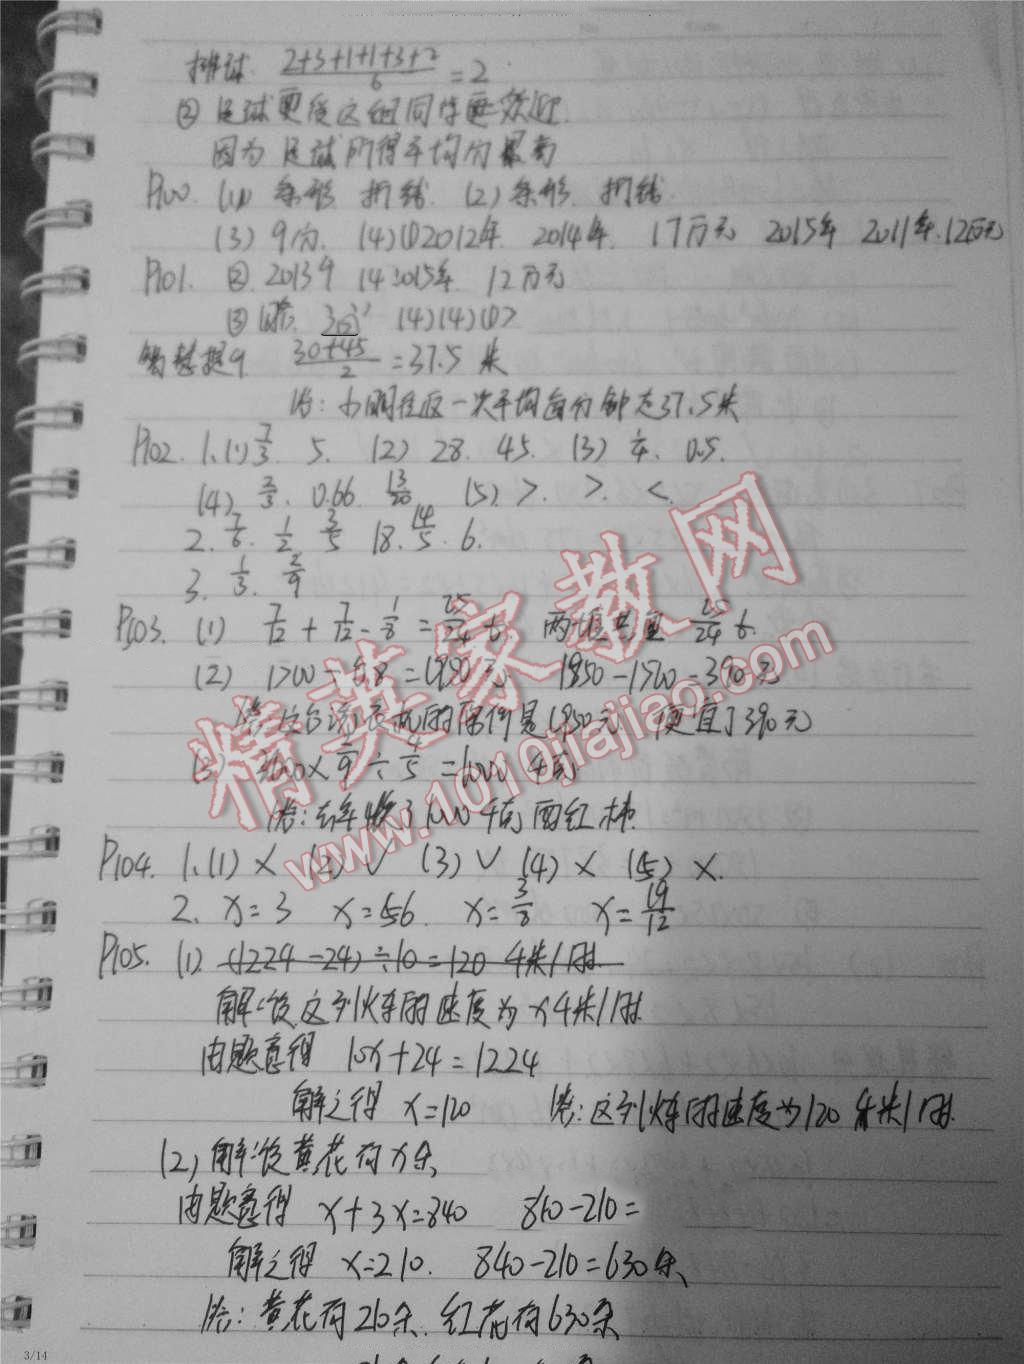 排球 (2+3+1+1+3+2)/6 = 2
② 足球更受这组同学更欢迎.
因为 足球所得平均分最高
P100. (1) 条形 折线. (2) 条形. 折线.
(3) 9分. (4)①2012年. 2014年. 17万元 2015年 2011年.12万元
P101. ② 2013年 14 2015年. 12万元
③ (4)(4)(1)
智慧提升 (30+45)/2 = 37.5 米
答: 小明往返一次平均每分钟走37.5米
P102. 1.(1) 7/3. 5. (2) 28. 45. (3) 0.5.
(4) 2/3. 0.66. 13/20 (5) >. >. <.
2. 7/6. 1/2. 3/5 18. 14/5. 6.
3. 1/3. 2/9
P103. (1) 7/12 + 7/12 - 1/8 = 25/24 t 两堆共重 25/24 t.
(2) 1560 ÷ 0.8 = 1950 元 1950-1560=390元
答: 这台洗衣机的原价是1950元 便宜了390元
(3) 3600 × 2/9 ÷ 4/5 = 1000 千克
答: 去年收了1000千克西红柿.
P104. 1.(1) × (2) √ (3) √ (4) × (5) ×.
2. x=3 x=56. x=3/8 x=19/12
P105. (1) (1224-24)÷10=120 千米/时.
解: 设这列火车的速度为x千米/时.
由题意得 10x+24=1224
解之得 x=120 答: 这列火车的速度为120千米/时.
(2) 解: 设黄花有x朵,
由题意得 x+3x=840 840-210=
解之得 x=210. 840-210=630朵,
答: 黄花有210朵. 红花有630朵
精英家教网
www.1010jiajiao.com
3/14